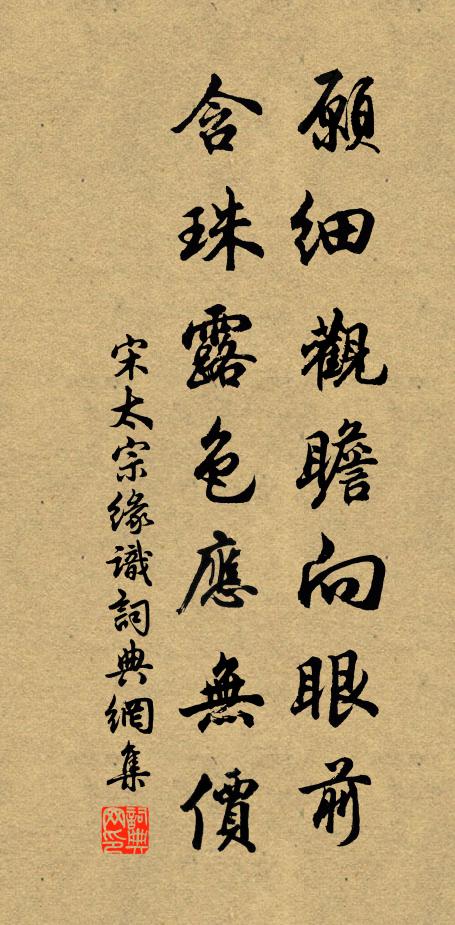 願細觀瞻向眼前
含珠露色應無價
宋太宗緣識詞典網集
詞典網印